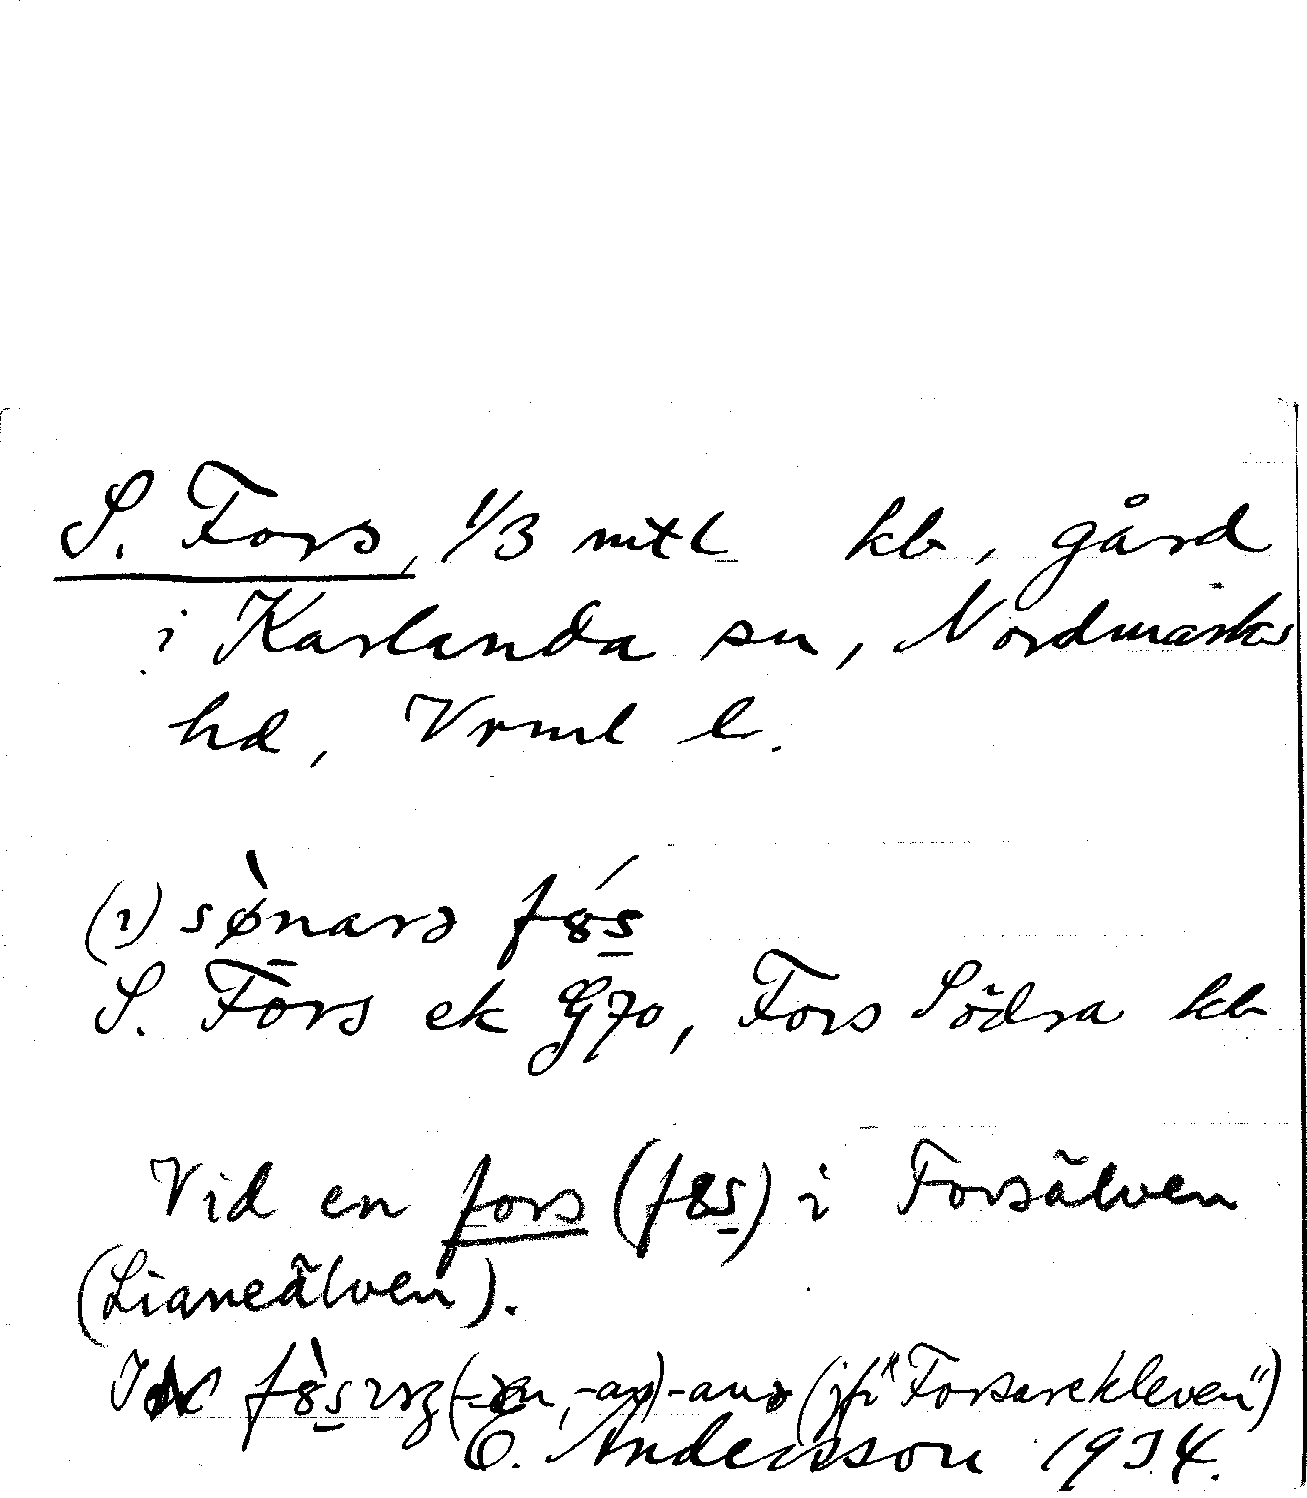 S. Fors, 1/3 mtl kb, gård
i Karlanda sn, Nordmarks
hd, Vrml l.
(i) sø̀narə f8́s
S. Fors ek G70, Fors Södra kb
Vid en fors (f8s) i Forsälven
(Lianeälven).
f8̀s (jfr "Forsarekleven")
E. Andersson 1934.